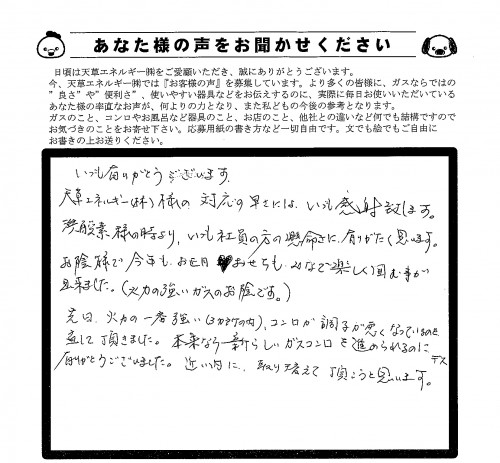 あなた様の声をお聞かせください
日頃は天草エネルギー㈱をご愛顧いただき、誠にありがとうございます。
今、天草エネルギー㈱では『お客様の声』を募集しています。より多くの皆様に、ガスならではの
”良さ”や”便利さ”、使いやすい器具などをお伝えするのに、実際に毎日お使いいただいている
あなた様の率直なお声が、何よりの力となり、また私どもの今後の参考となります。
ガスのこと、コンロやお風呂など器具のこと、お店のこと、他社との違いなど何でも結構ですので
お気づきのことをお寄せ下さい。応募用紙の書き方など一切自由です。文でも絵でもご自由に
お書きの上お送りください。
いつも有りがとうございます。
天草エネルギー(株)様の対応の早さには、いつも感謝致します。
酸素様の時より、いつも社員の方の懸命さに、有りがたく思います。
お陰様で今年も、お正月おせちも、みなで楽しく囲む事が
出来ました。(火力の強いガスのお陰です。)
先日、火力の一番強い(3カ所の内)、コンロが調子が悪くなっているのを
直して頂きました。本来なら新らしいガスコンロを進められるのに
有りがとうございました。近い内に、取り替えて頂こうと思います。